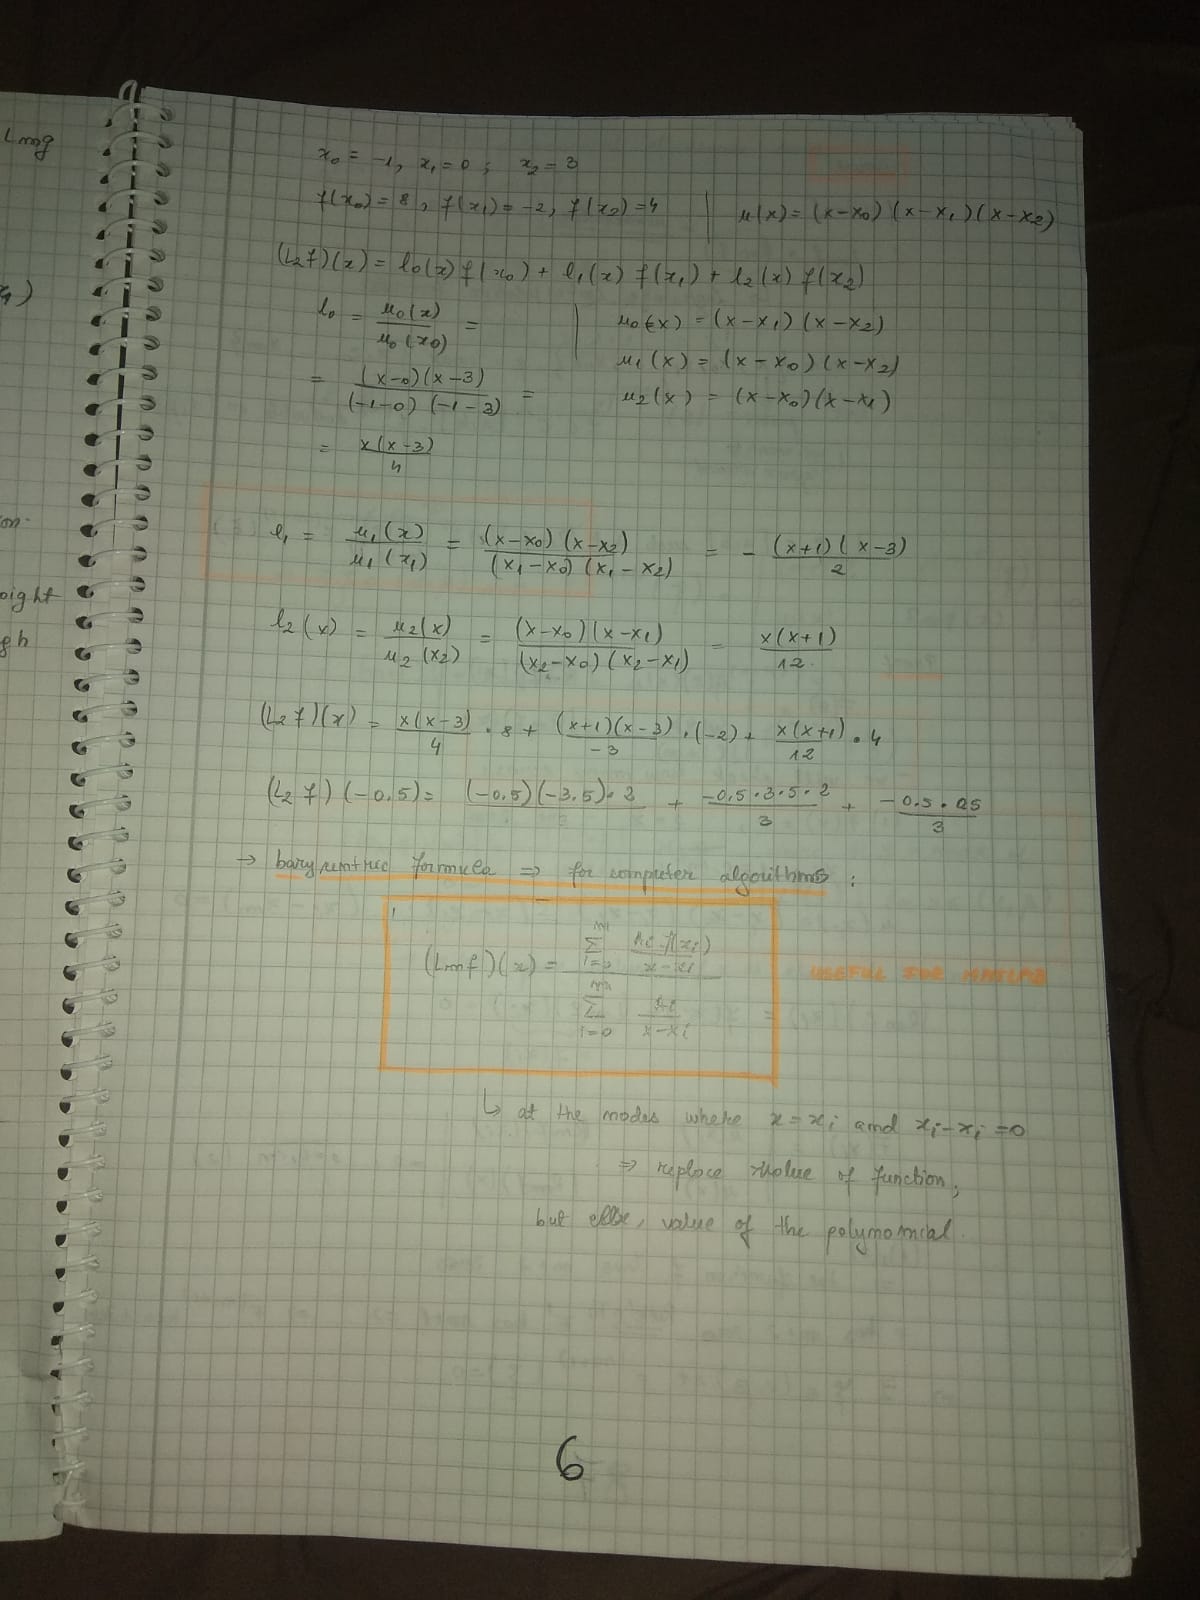 Lmg
x₀ = -1, x₁ = 0 ; x₂ = 3
f(x₀) = 8, f(x₁) = -2, f(x₂) = 4 | u(x) = (x-x₀)(x-x₁)(x-x₂)
(L₂f)(x) = l₀(x) f(x₀) + l₁(x) f(x₁) + l₂(x) f(x₂)
l₀ = u₀(x)/u₀(x₀) = | u₀(x) = (x-x₁)(x-x₂)
u₁(x) = (x-x₀)(x-x₂)
= (x-0)(x-3)/(-1-0)(-1-3) = u₂(x) = (x-x₀)(x-x₁)
= x(x-3)/4
l₁ = u₁(x)/u₁(x₁) = (x-x₀)(x-x₂)/(x₁-x₀)(x₁-x₂) = - (x+1)(x-3)/2
on.
oight
gh
l₂(x) = u₂(x)/u₂(x₂) = (x-x₀)(x-x₁)/(x₂-x₀)(x₂-x₁) = x(x+1)/12
(L₂f)(x) = x(x-3)/4 · 8 + (x+1)(x-3)/-3 · (-2) + x(x+1)/12 · 4
(L₂f)(-0.5) = (-0.5)(-3.5)·2 + -0.5·3.5·2/3 + -0.5·0.5/3
→ barycentric formula ⇒ for computer algorithms :
(Lmf)(x) = Σ i=0 Ai f(xi)/x-xi / Σ i=0 Ai/x-xi USEFUL FOR MATLAB
↳ at the nodes where x = xi and xi-xi = 0
⇒ replace value of function,
but else, value of the polynomial.
6